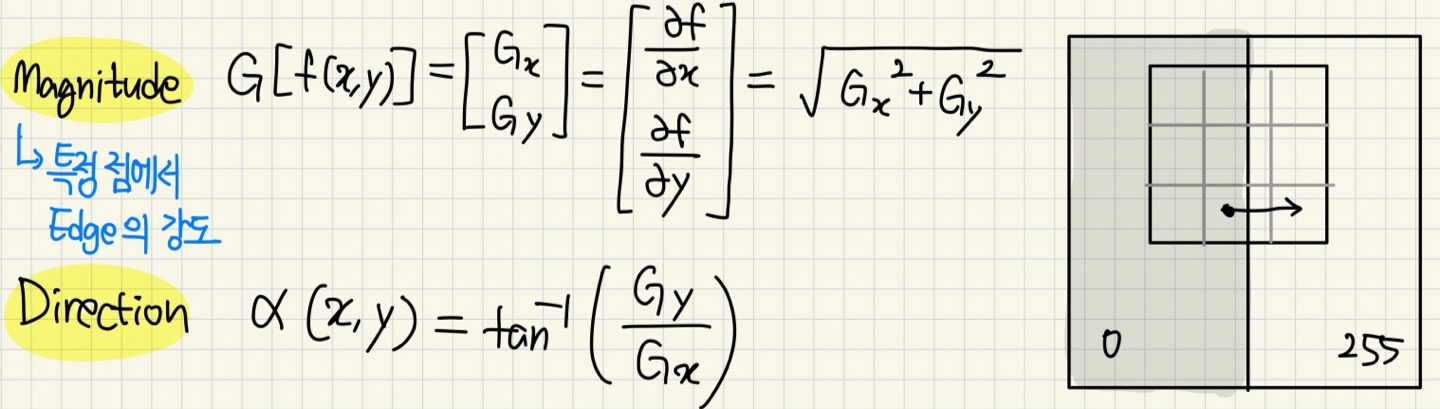 Magnitude G[f(x,y)] = [Gx Gy] = [∂f/∂x ∂f/∂y] = √(Gx²+Gy²)
↳ 특정 점에서
Edge의 강도
Direction α(x,y) = tan⁻¹(Gy/Gx)
0 255